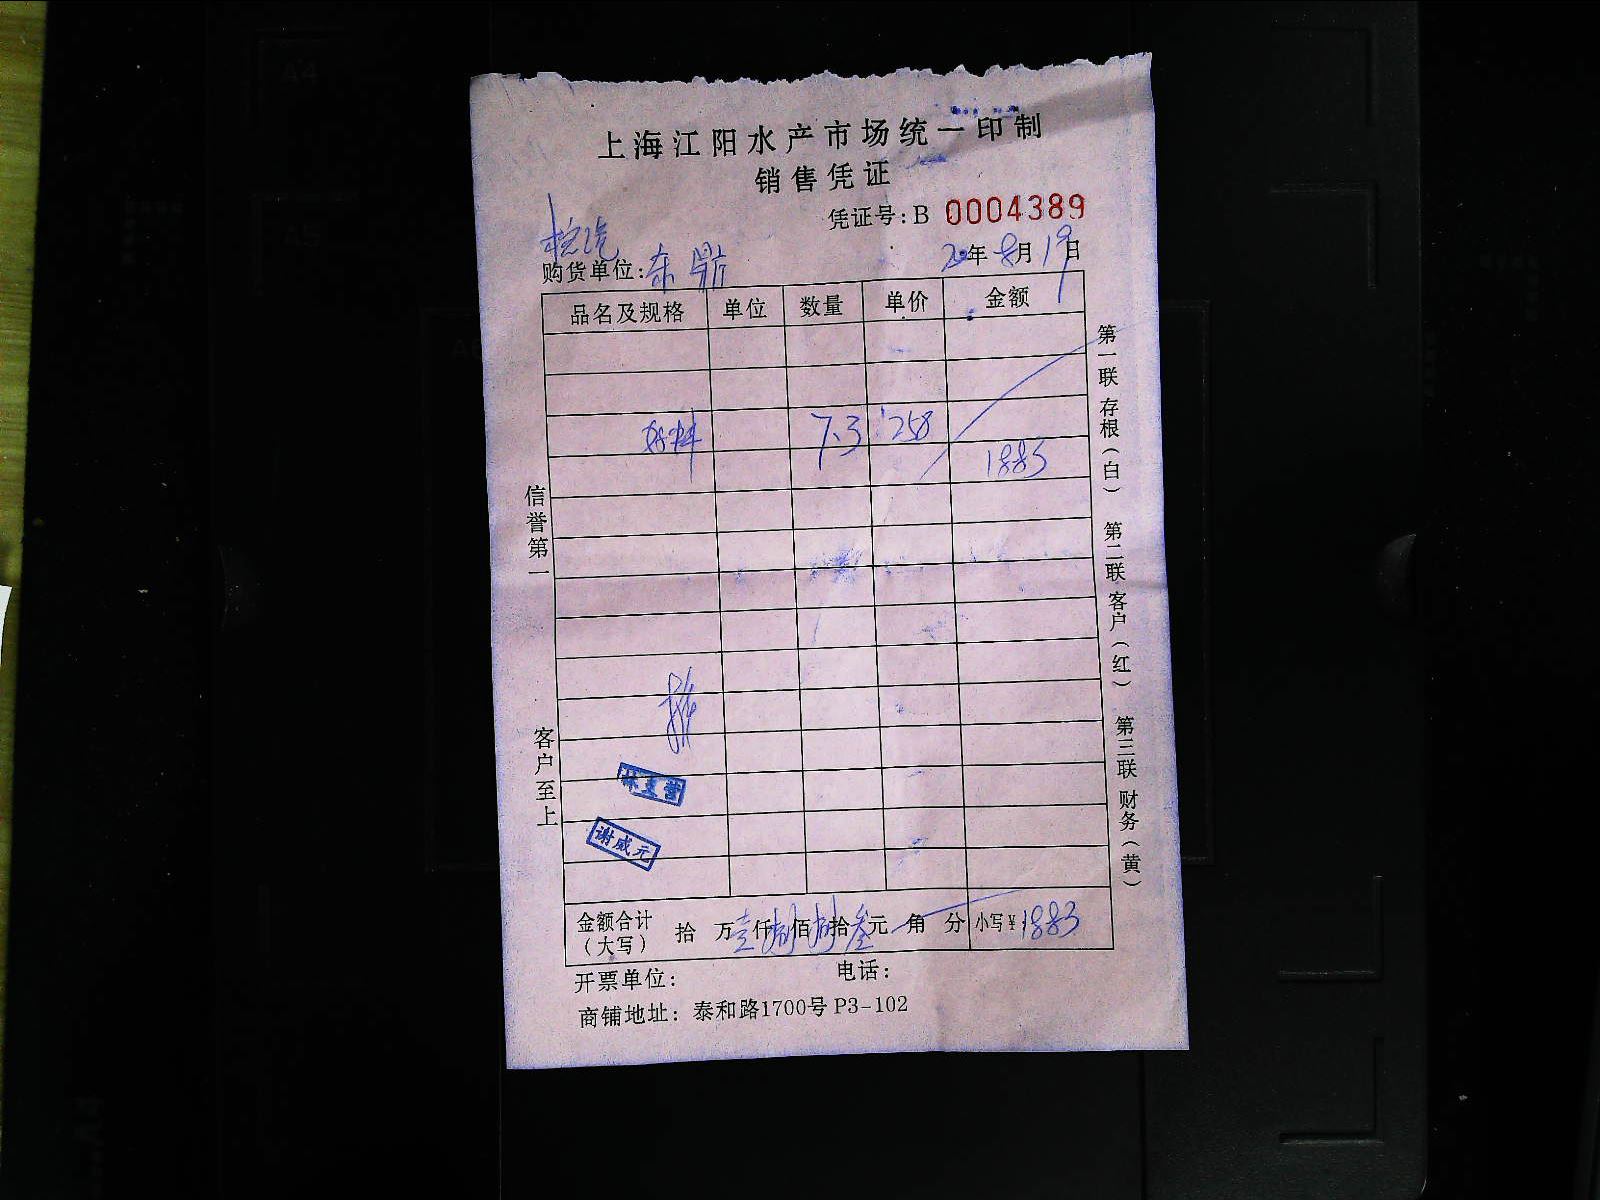 上海江阳水产市场统一印制
销售凭证
凭证号:B 0004389
购货单位:东鼎 20年8月19日
品名及规格 单位 数量 单价 金额
7.3 258
1883
谢威元
金额合计(大写) 拾 万壹仟捌佰捌拾叁元 角 分 小写¥:1883
开票单位: 电话:
商铺地址: 泰和路1700号 P3-102
信誉第一
客户至上
第一联 存根(白) 第二联 客户(红) 第三联 财务(黄)